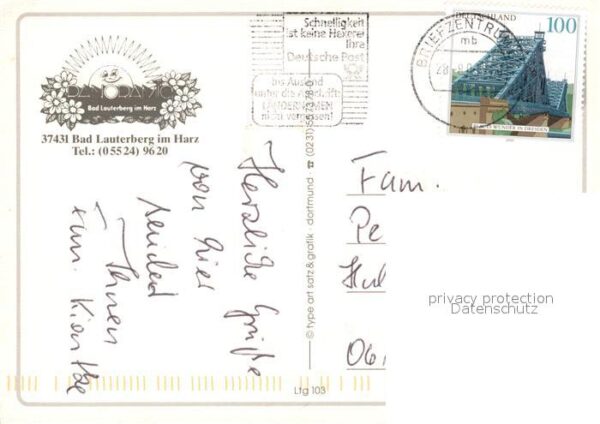 PANORAMIC
Bad Lauterberg im Harz
37431 Bad Lauterberg im Harz
Tel.: (0 55 24) 96 20
Schnelligkeit
ist keine Hexerei
Ihre
Deutsche Post
Ins Ausland
unter die Anschrift:
LÄNDERNAMEN
nicht vergessen!
BRIEFZENTRUM
mb
28
DEUTSCHLAND
100
BLAUES WUNDER IN DRESDEN
Herzliche Grüße
von hier
sendet
Ihnen
Fam.
© type art satz & grafik · dortmund · ☎ (0231)
Fam.
Pe
Hul
06
Lfg 103
privacy protection
Datenschutz